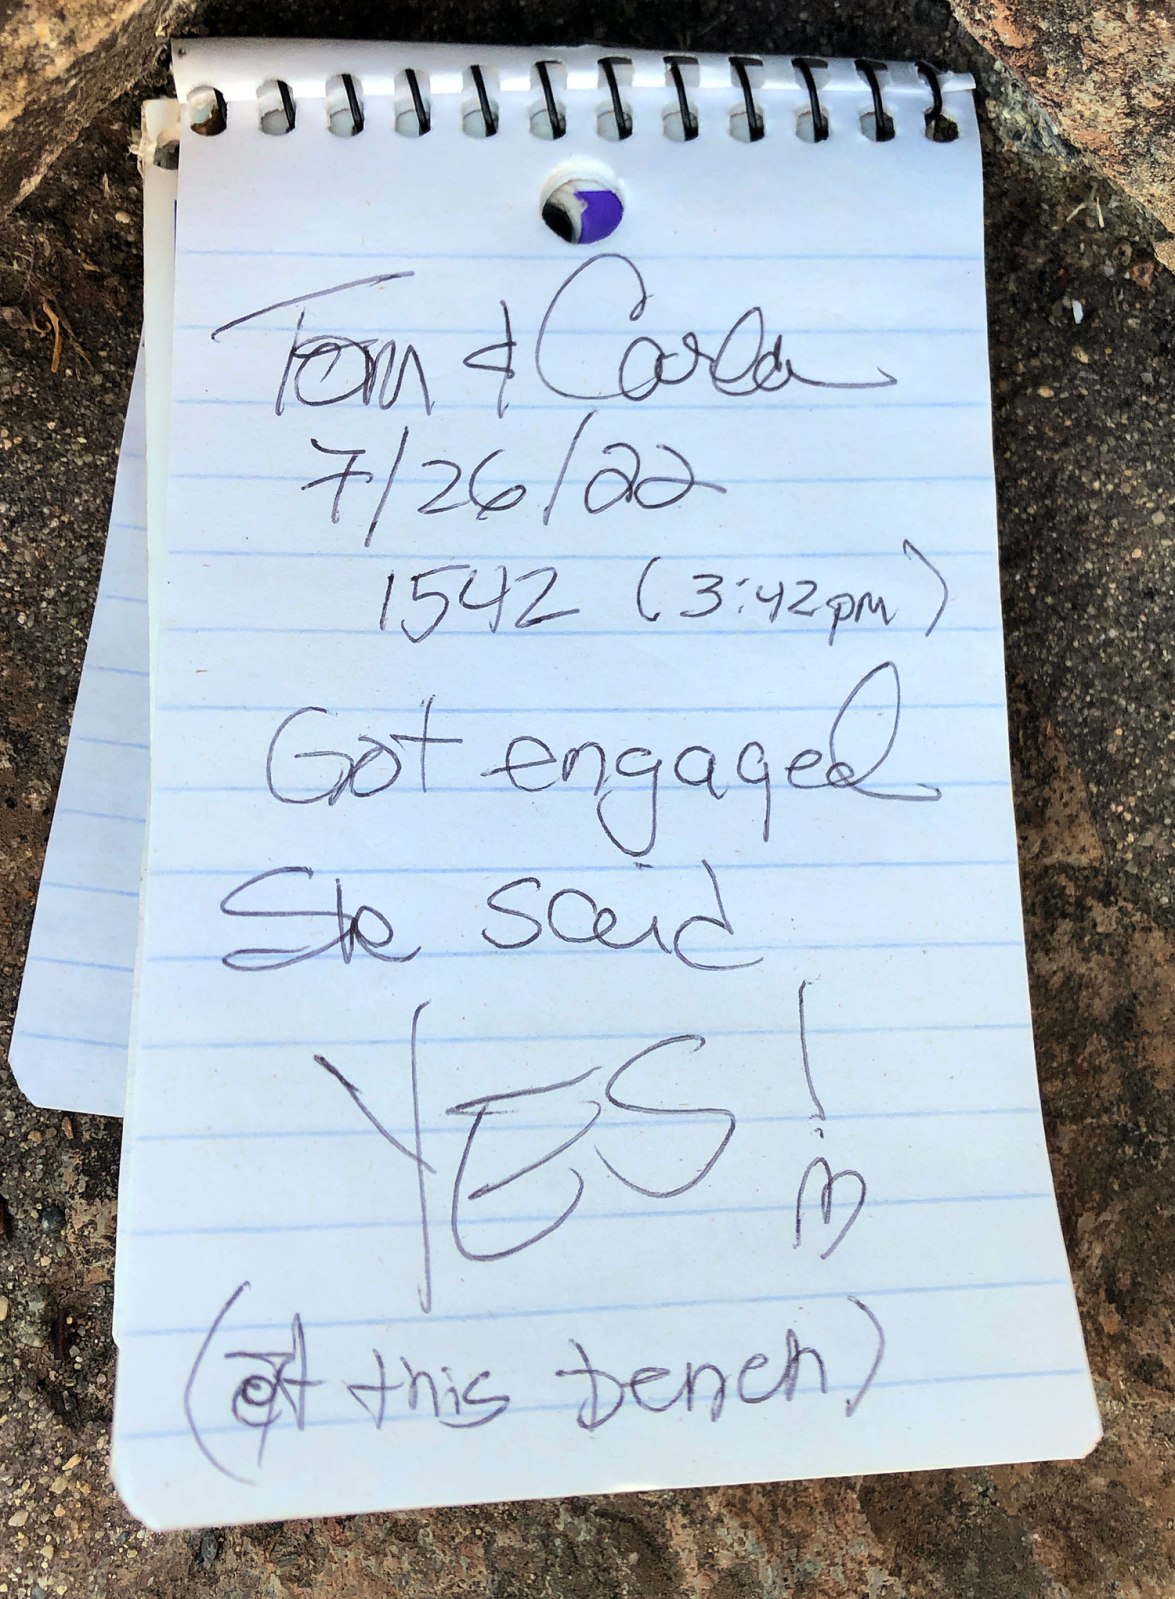 Tom & Carla
7/26/22
1542 (3:42pm)
Got engaged
She said
YES!
(at this bench)